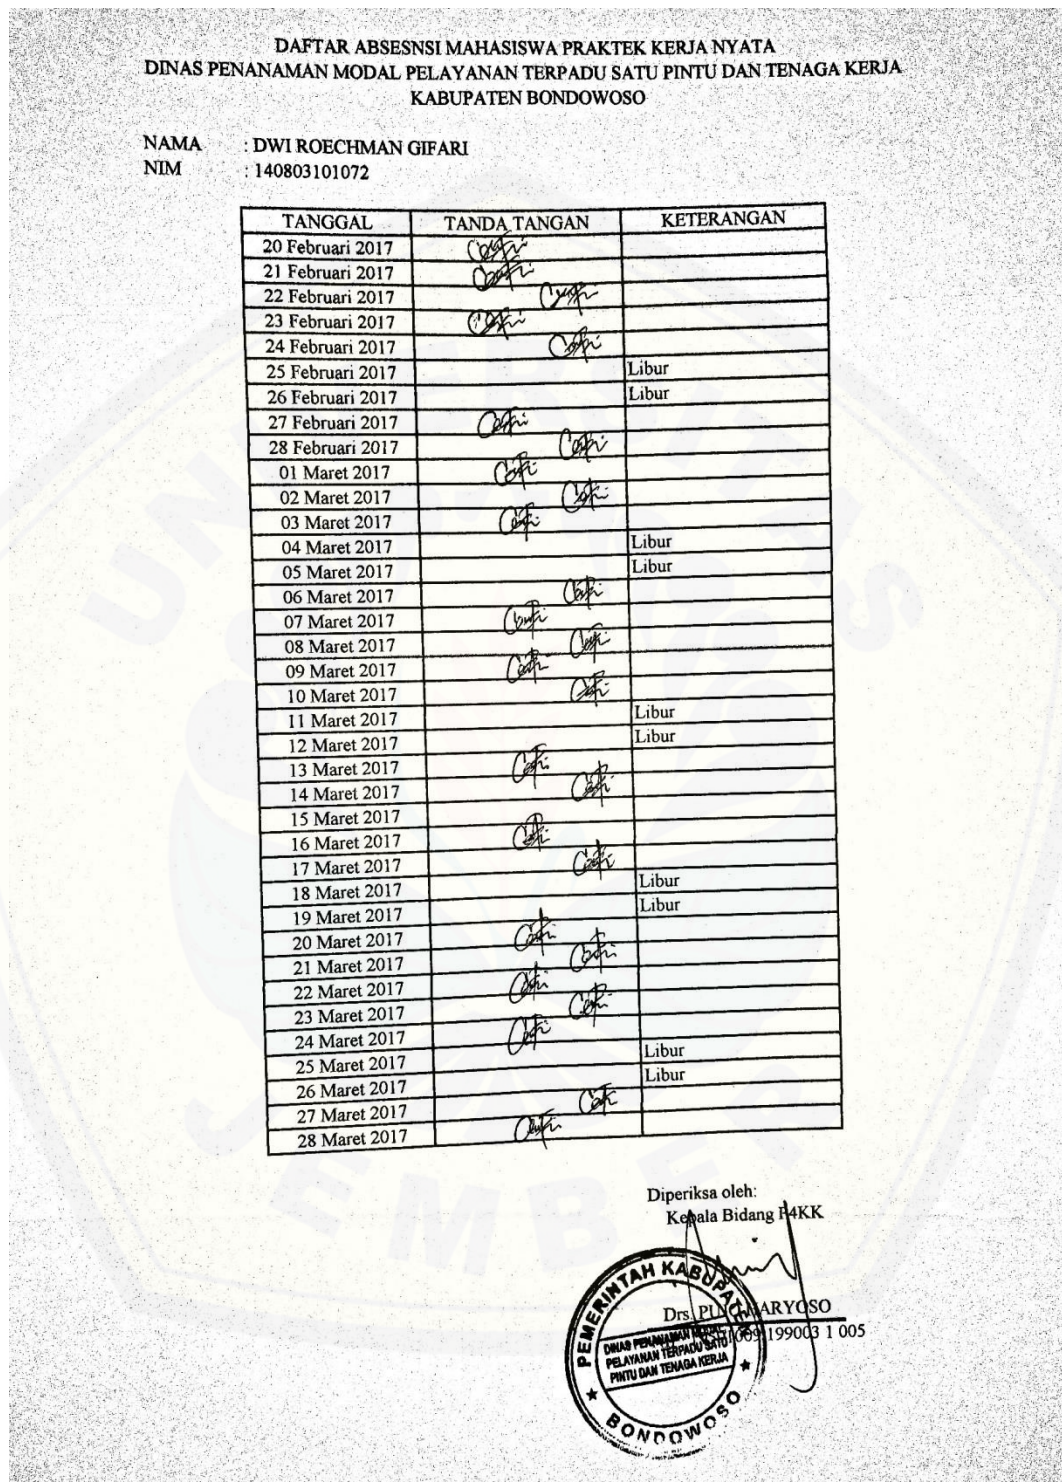 DAFTAR ABSESNSI MAHASISWA PRAKTEK KERJA NYATA
DINAS PENANAMAN MODAL PELAYANAN TERPADU SATU PINTU DAN TENAGA KERJA
KABUPATEN BONDOWOSO
NAMA : DWI ROECHMAN GIFARI
NIM : 140803101072
TANGGAL TANDA TANGAN KETERANGAN
20 Februari 2017
21 Februari 2017
22 Februari 2017
23 Februari 2017
24 Februari 2017
25 Februari 2017 Libur
26 Februari 2017 Libur
27 Februari 2017
28 Februari 2017
01 Maret 2017
02 Maret 2017
03 Maret 2017
04 Maret 2017 Libur
05 Maret 2017 Libur
06 Maret 2017
07 Maret 2017
08 Maret 2017
09 Maret 2017
10 Maret 2017
11 Maret 2017 Libur
12 Maret 2017 Libur
13 Maret 2017
14 Maret 2017
15 Maret 2017
16 Maret 2017
17 Maret 2017
18 Maret 2017 Libur
19 Maret 2017 Libur
20 Maret 2017
21 Maret 2017
22 Maret 2017
23 Maret 2017
24 Maret 2017
25 Maret 2017 Libur
26 Maret 2017 Libur
27 Maret 2017
28 Maret 2017
Diperiksa oleh:
Kepala Bidang P4KK
Drs.
199003 1 005
PEMERINTAH KABUPATEN
DINAS PENANAMAN MODAL
PELAYANAN TERPADU SATU
PINTU DAN TENAGA KERJA
BONDOWOSO
UNIVERSITAS
JEMBER